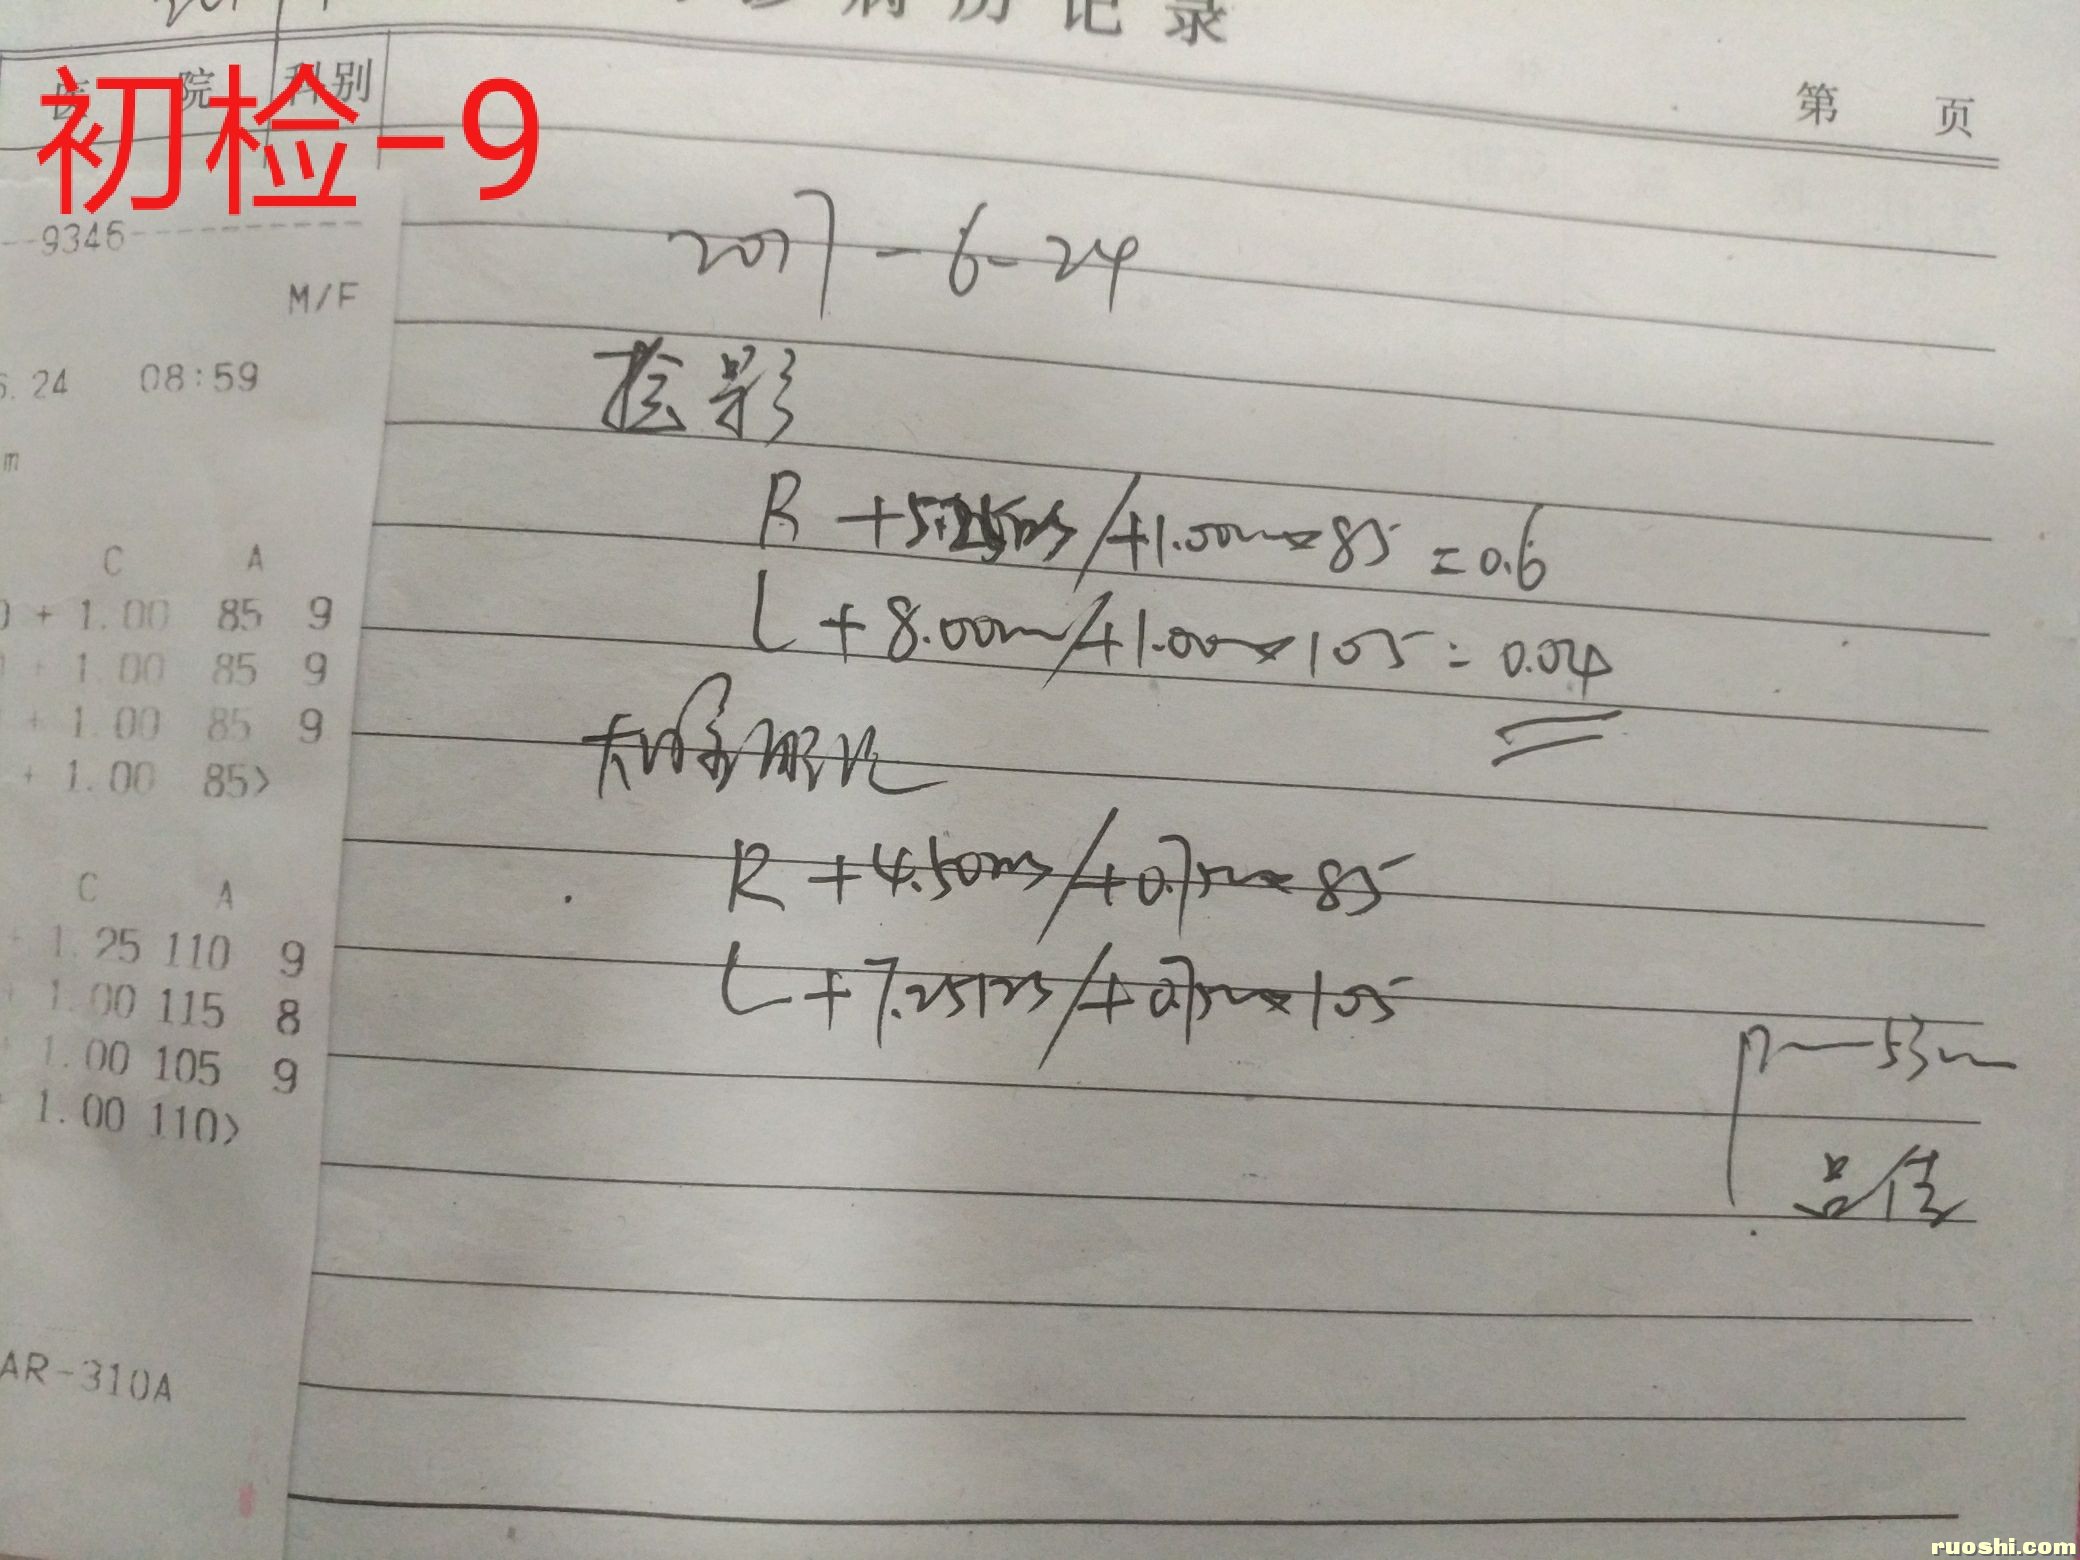 病历记录
医院 科别
第 页
初检-9
--9346-----------
M/F
6.24 08:59
m
C A
0 + 1.00 85 9
+ 1.00 85 9
+ 1.00 85 9
+ 1.00 85>
C A
+ 1.25 110 9
1.00 115 8
1.00 105 9
1.00 110>
AR-310A
2017-6-24
检影
R +5.25DS/+1.00DC×85=0.6
L +8.00DS/+1.00DC×105=0.04
R +4.50DS/+0.75DC×85
L +7.25DS/+0.75DC×105
53mm
ruoshi.com